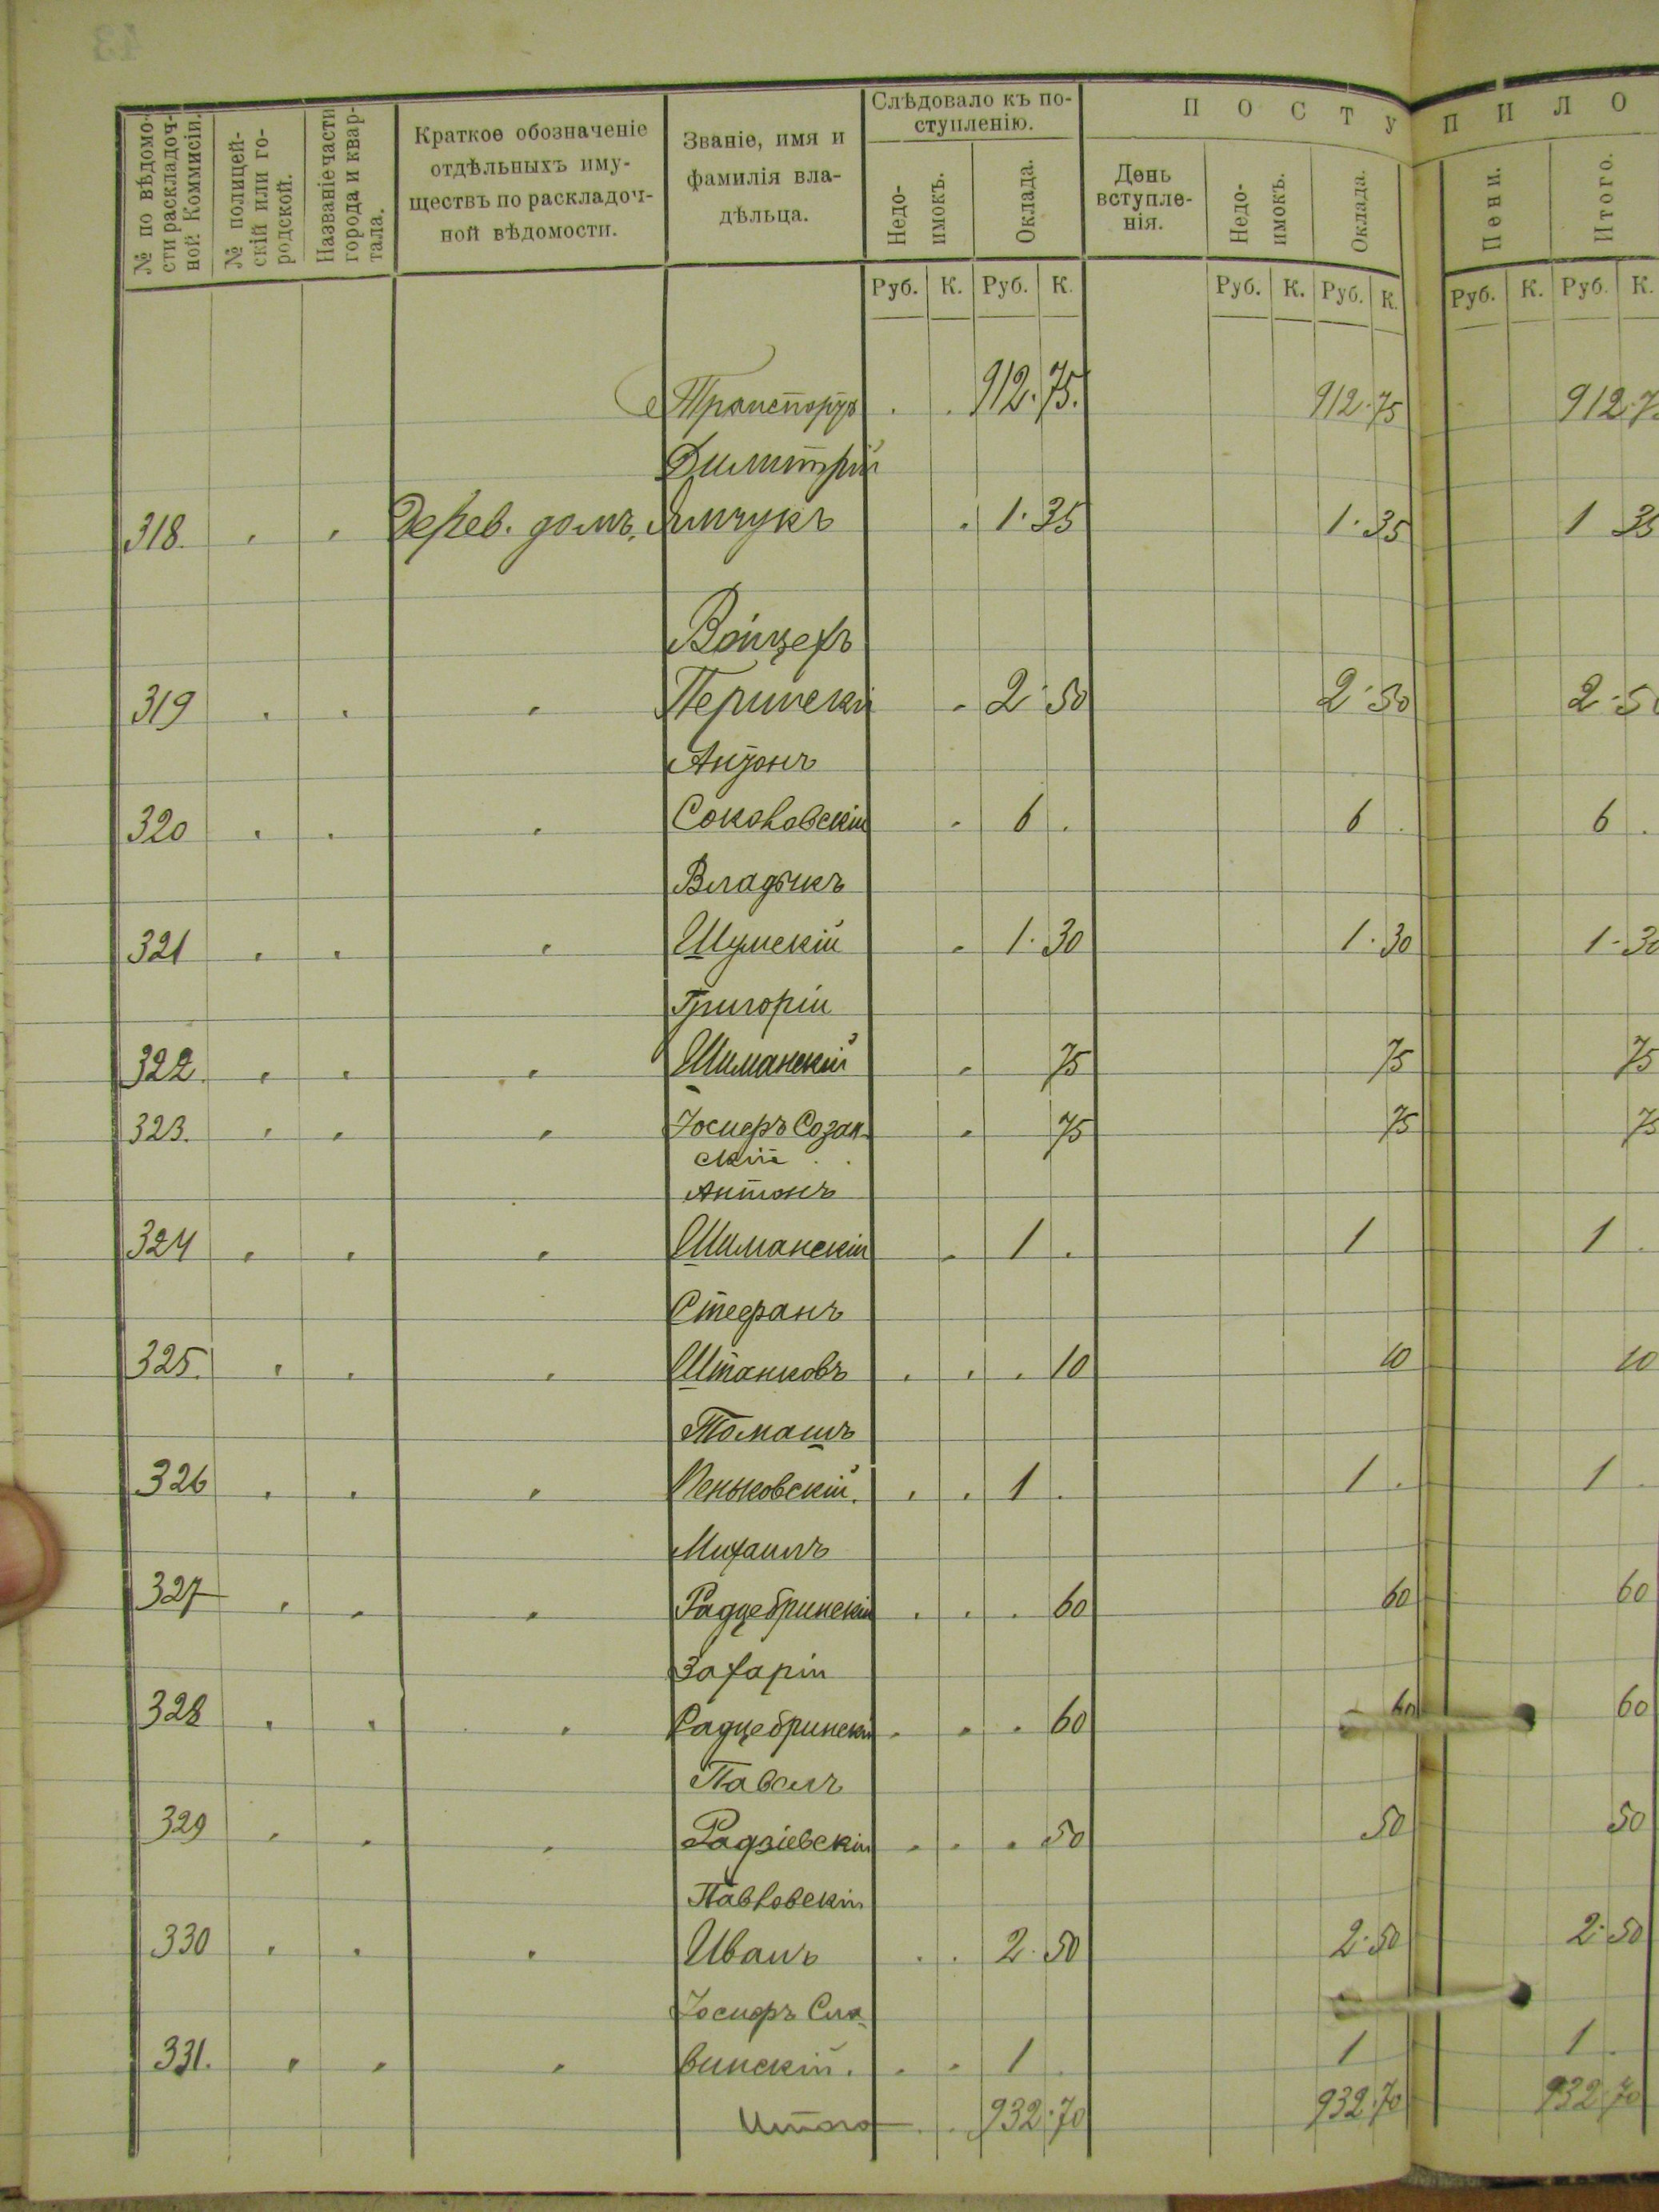 № по вѣдомости раскладочной Коммисіи.
№ полицейскій или городской.
Названіе части города и квартала.
Краткое обозначеніе
отдѣльныхъ иму-
ществъ по раскладоч-
ной вѣдомости.
Званіе, имя и
фамилія вла-
дѣльца.
Слѣдовало къ по-
ступленію.
Недо-
имокъ.
Оклада.
П О С Т У П И Л О
День
вступле-
нія.
Недо-
имокъ.
Оклада.
Пени.
Итого.
Руб. К. Руб. К. Руб. К. Руб. К. Руб. К. Руб. К.
Транспортъ . . 912.75. 912.75 912.7
Димитрій
318. " " Дерев. домъ. Ямчукъ . 1.35 1.35 1 35
Войцехъ
319 " " " Перинскі . 2.50 2.50 2.50
Антонъ
320 " " " Соколовскій . 6 . 6 . 6 .
Владыкъ
321 " " " Шумскій . 1.30 1.30 1.30
Григорій
322. " " " Шиманскій . 75 75 75
323. " " " Іосифъ Созан-
скій . 75 75 75
Антонъ
324 " " " Шиманскій . 1 . 1 1 .
Стефанъ
325. " " " Штанковъ . . . 10 10 10
Томашъ
326 " " " Пеньковскій. . . 1 . 1 . 1 .
Михаилъ
327 " " " Радцебринскій . . . 60 60 60
Захарій
328 " " " Радцебринскі . . . 60 60 60
Павелъ
329 " " " Радзіевскій . . . 50 50 50
Павловскій
330 " " " Иванъ . . 2.50 2.50 2.50
Іосифъ Сла-
331. " " " винскій. . . 1 . 1 1 .
Итого . . 932.70 932.70 932.70